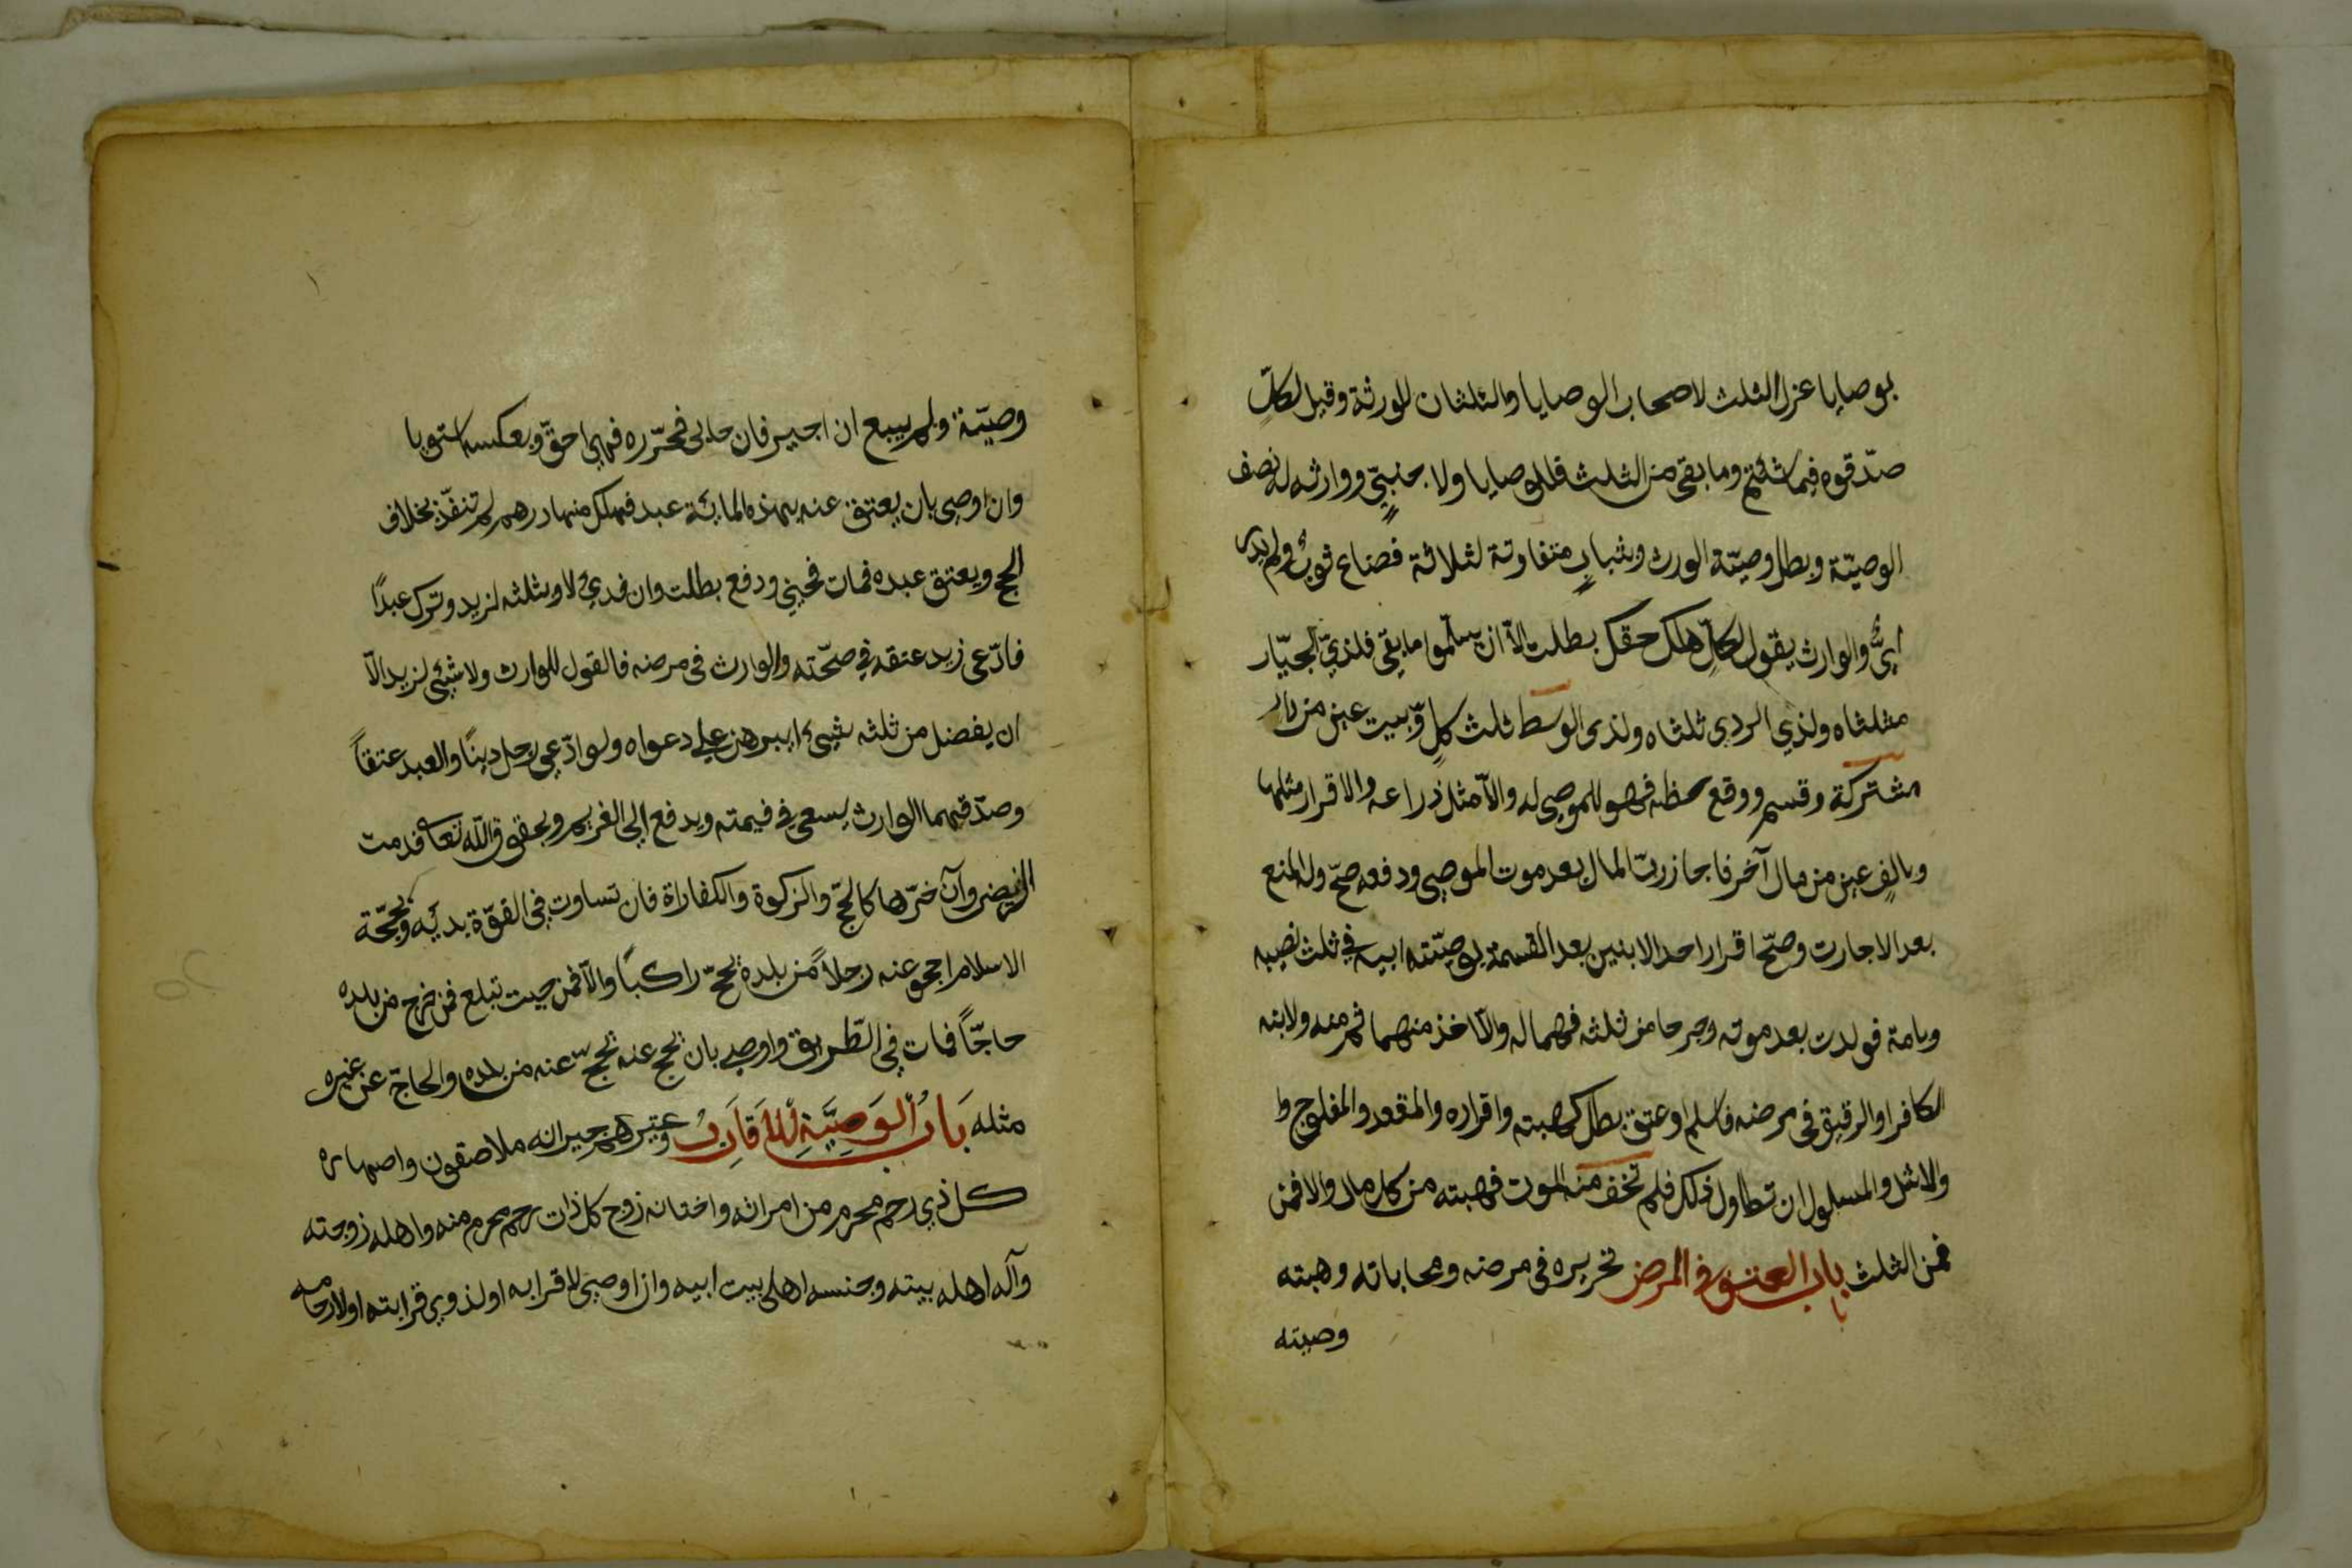 بوصايا عزل الثلث لاصحاب الوصايا والثلثان للورثة وقيل لكلٍّ
صدّقوه فيما شئتم وما بقى من الثلث فللوصايا ولاجنبيٍّ ووارثه له نصف
الوصيّة وبطل وصيّة الورث وبثيابٍ متفاوتة لثلاثة فضاع ثوبٌ ولم يدر
ايٌّ والوارث يقول لكلّ هلك حقك بطلت الّا ان يسلّموا ما بقى فلذيّ الجيّار
مثلثاه ولذي الردى ثلثاه ولذى الوسط ثلث كلٍ وببيت عين من دار
مشتركة وقسم ووقع حظه فهو للموصى له والّا مثل ذراعه والاقرار مثلها
وبالفٍ عين من مال آخر فاجاز ربّ المال بعد موت الموصى ودفعه صحّ وله المنع
بعد الاجارت وصحّ اقرار احد الابنين بعد القسمة بوصيّته ابيه في ثلث نصيبه
وبامة فولدت بعد موته وخرجا من ثلثه فهما له والّا اخذ منهما ثم منه ولابنه
الكافر او الرقيق فى مرضه فاسلم او عتق بطل كهبته واقراره والمقعد والمفلوج وا
والاشل والمسلول ان تطاول ذلك فلم تخف منه الموت فهبته من كل مال والا فمن
فمن الثلث باب العتق في المرض تحريره فى مرضه ومحاباته وهبته
وصيته
وصيّة ولم يبيع ان اجيز فان حابى فحرّره فهى احقّ وبعكسه استويا
وان اوصى بان يعتق عنه بهذه المائة عبد فهلك منها درهم لم تنفّذ بخلاف
الحج وبعتق عبده فمات فجنى ودفع بطلت وان فدي لا وبثلثه لزيد وترك عبدًا
فادّعى زيد عتقه في صحّته والوارث فى مرضه فالقول للوارث ولا شئ لزيد الّا
ان يفضل من ثلثه شيئ او يبرهن علي دعواه ولو ادّعى رجل دينًا والعبد عتقاً
وصدّقهما الوارث يسعى في قيمته ويدفع إلى الغريم وبحقوق اللّه تعا قدمت
الفرايض وان اخّرها كالحجّ والزكوة والكفاراة فان تساوت في القوّة بدئ به وبحجّة
الاسلام احجو عنه رجلاً من بلده يحجّ راكباً والّا فمن حيث تبلغ فمن خرج من بلده
حاجّاً فمات في الطّريق واوصى بان يحج عنه يحجّ عنه من بلده والحاجّ عن غيره
مثله بَابُ الوَصِيَّةِ لِلأَقَارِبُ وغيرهم جيرانه ملاصقون واصهاره
كل ذي رحم محرم من امراته واختانه زوج كل ذات رحم محرم منه واهله زوجته
وآله اهله بيته وجنسه اهل بيت ابيه وان اوصى لاقرابه او لذوي قرابته او لارحامه